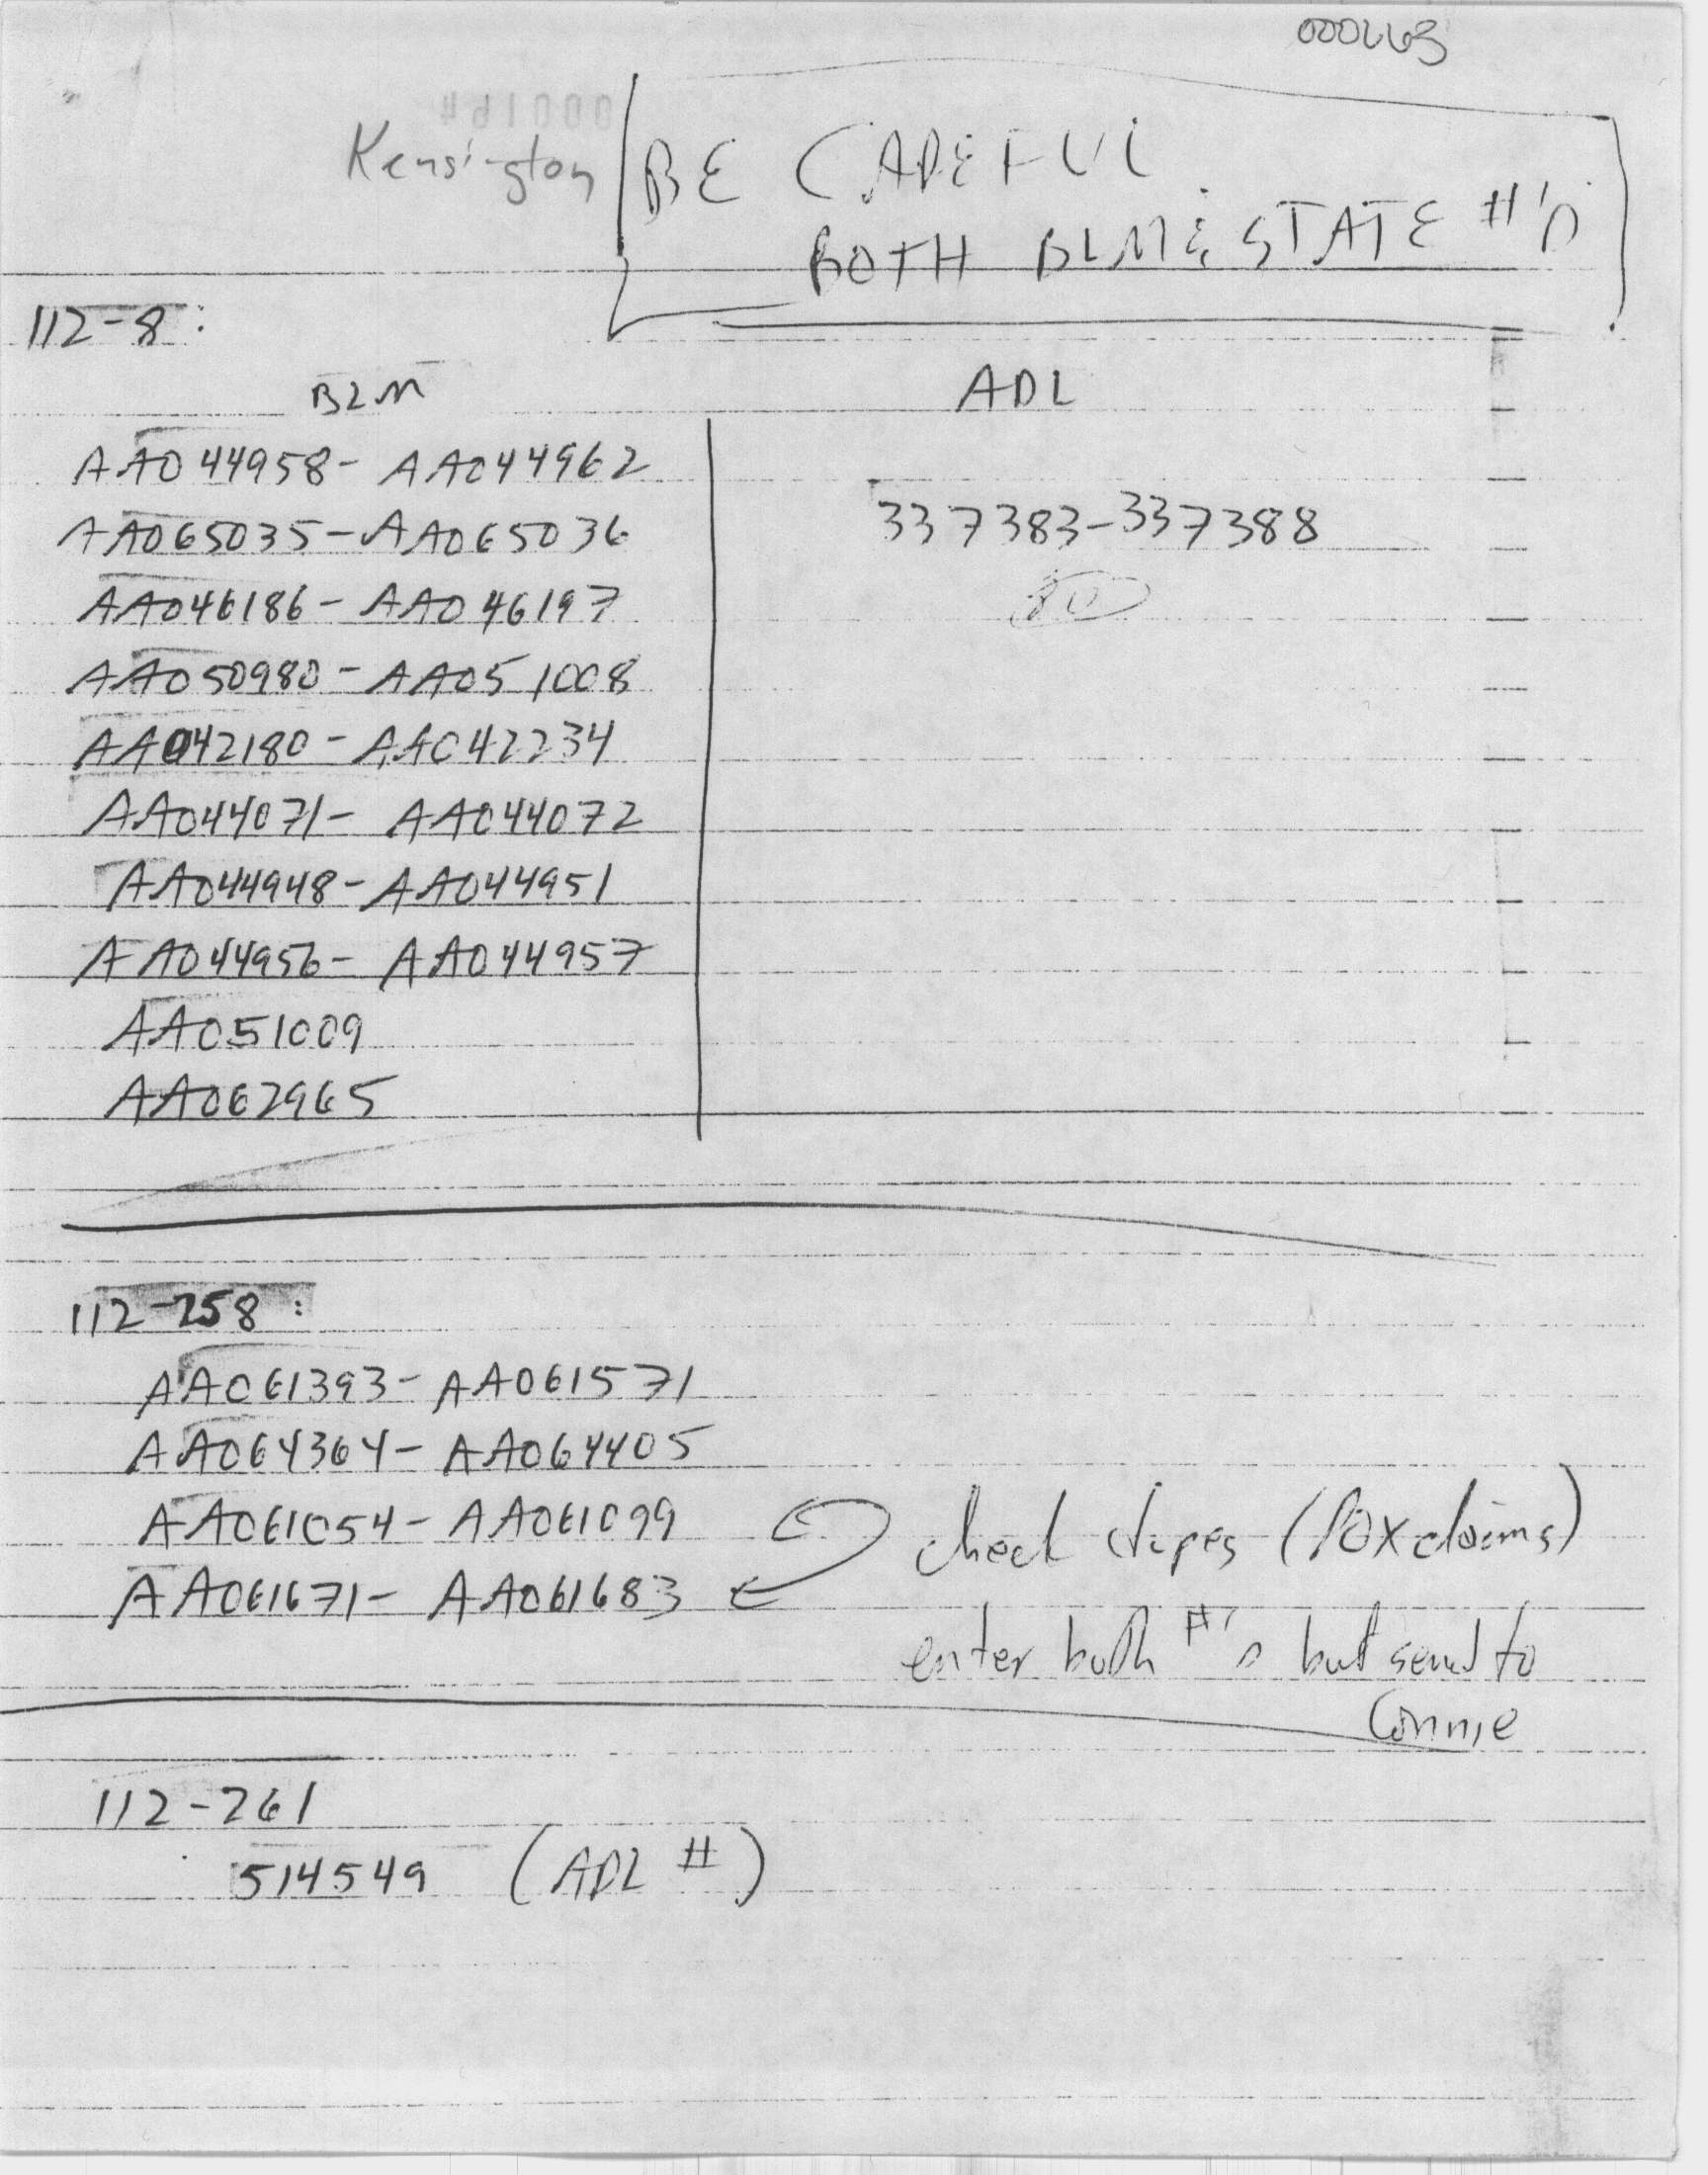 Kensington
BE CAREFUL
BOTH BLM & STATE #'s
112-8:
BLM ADL
AA044958- AA044962
AA065035-AA065036 337383-337388
AA046186- AA046197 80
AA050980- AA051008
AA042180- AA042234
AA044071- AA044072
AA044948- AA044951
AA044956- AA044957
AA051009
AA062965
112-258:
AA061393- AA061571
AA064364- AA064405
AA061054- AA061099
check (10X claims)
AA061671- AA061683
enter both #'s but send to
Connie
112-261
514549 (ADL #)